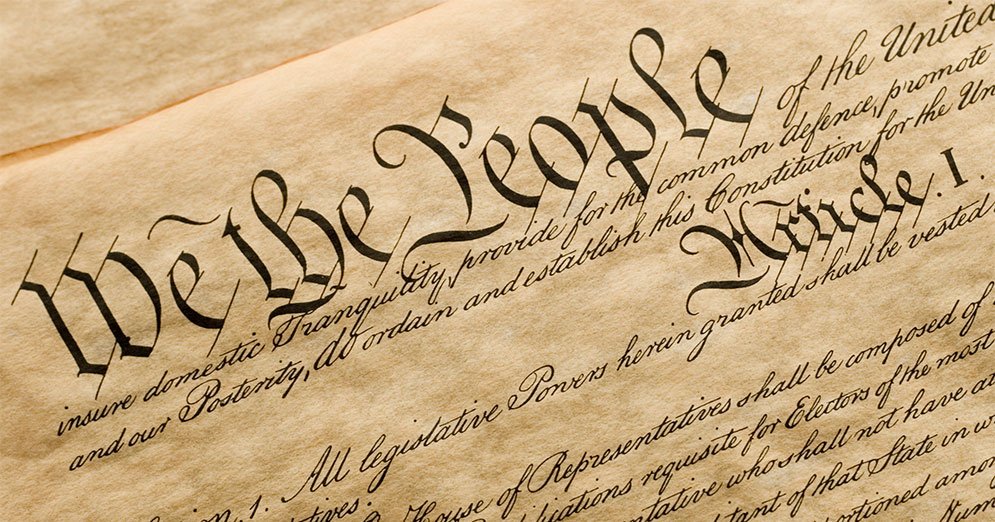 We the People of the United
insure domestic Tranquility, provide for the common defence, promote
and our Posterity, do ordain and establish this Constitution for the Un
Article. I.
1. All legislative Powers herein granted shall be vested
House of Representatives shall be composed of
ications requisite for Electors of the most
tives.
ntative who shall not have at
tant of that State in w
ortioned amon
Num